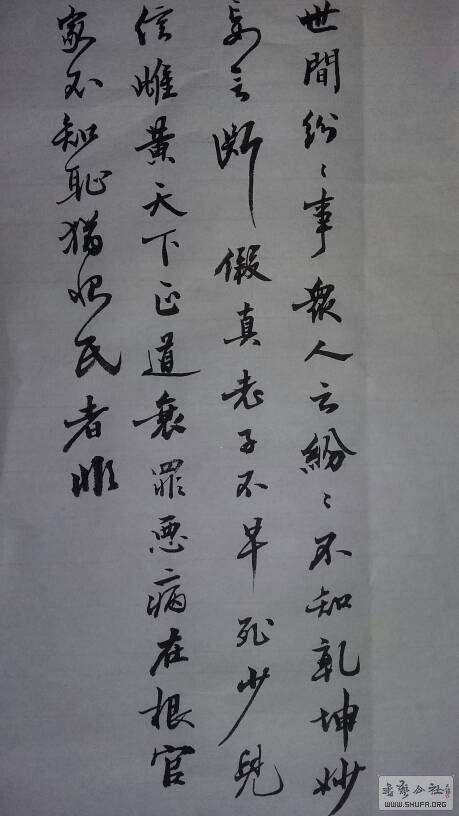 世間紛〻事衆人云紛〻不知乾坤妙
妄言断假真老子不早死少兒
信雌黄天下正道衰罪惡病在根官
家不知恥猶民者非
书艺公社
WWW.SHUFA.ORG